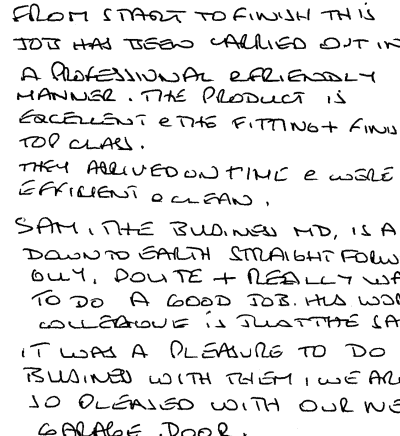 FROM START TO FINISH THIS
JOB HAS BEEN CARRIED OUT IN
A PROFESSIONAL & FRIENDLY
MANNER. THE PRODUCT IS
EXCELLENT & THE FITTING + FINIS
TOP CLASS.
THEY ARRIVED ON TIME & WERE
EFFICIENT & CLEAN.
SAM, THE BUSINESS MD, IS A
DOWN TO EARTH STRAIGHT FORW
GUY, POLITE + REALLY WA
TO DO A GOOD JOB. HIS WOR
COLLEAGUE IS JUST THE SA
IT WAS A PLEASURE TO DO
BUSINESS WITH THEM, WE AR
SO PLEASED WITH OUR NE
GARAGE DOOR.